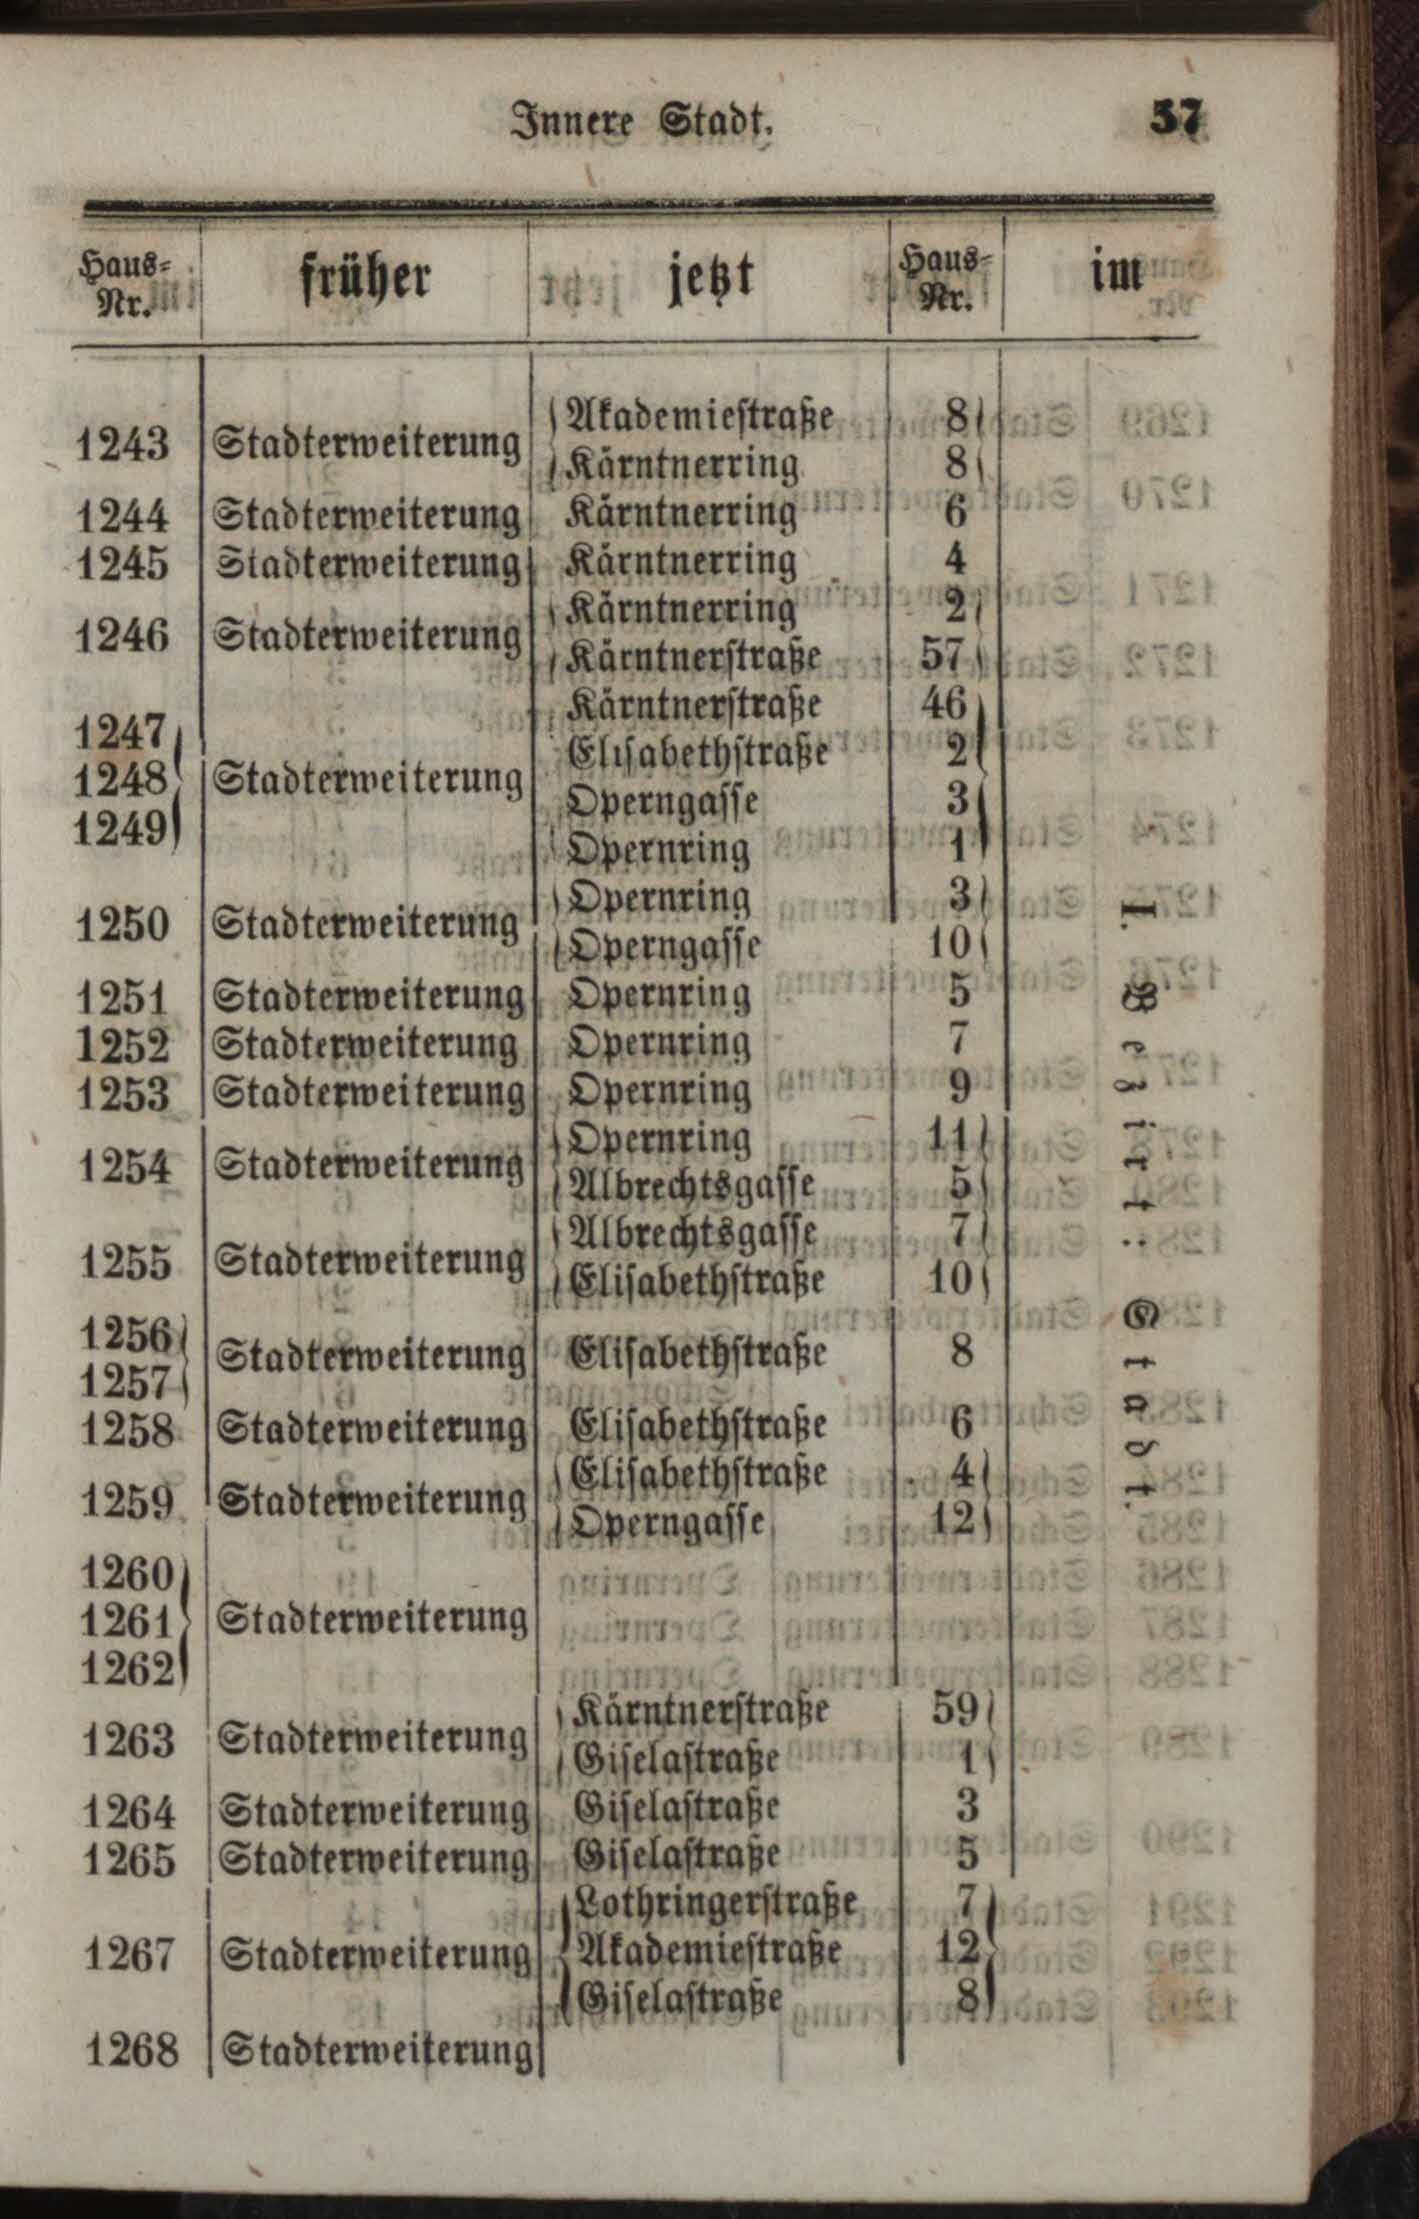 Innere Stadt. 57
Haus-Nr. früher jetzt Haus-Nr. im
1243 Stadterweiterung Akademiestraße 8
Kärntnerring 8
1244 Stadterweiterung Kärntnerring 6
1245 Stadterweiterung Kärntnerring 4
1246 Stadterweiterung Kärntnerring 2
Kärntnerstraße 57
Kärntnerstraße 46
1247
Elisabethstraße 2
1248 Stadterweiterung
Operngasse 3
1249
Opernring 1
1250 Stadterweiterung Opernring 3
Operngasse 10
1251 Stadterweiterung Opernring 5
1252 Stadterweiterung Opernring 7
1253 Stadterweiterung Opernring 9
1254 Stadterweiterung Opernring 11
Albrechtsgasse 5
1255 Stadterweiterung Albrechtsgasse 7
Elisabethstraße 10
1256
1257 Stadterweiterung Elisabethstraße 8
1258 Stadterweiterung Elisabethstraße 6
1259 Stadterweiterung Elisabethstraße 4
Operngasse 12
1260
1261 Stadterweiterung
1262
1263 Stadterweiterung Kärntnerstraße 59
Giselastraße 1
1264 Stadterweiterung Giselastraße 3
1265 Stadterweiterung Giselastraße 5
Lothringerstraße 7
1267 Stadterweiterung Akademiestraße 12
Giselastraße 8
1268 Stadterweiterung
I. Bezirk: Stadt.